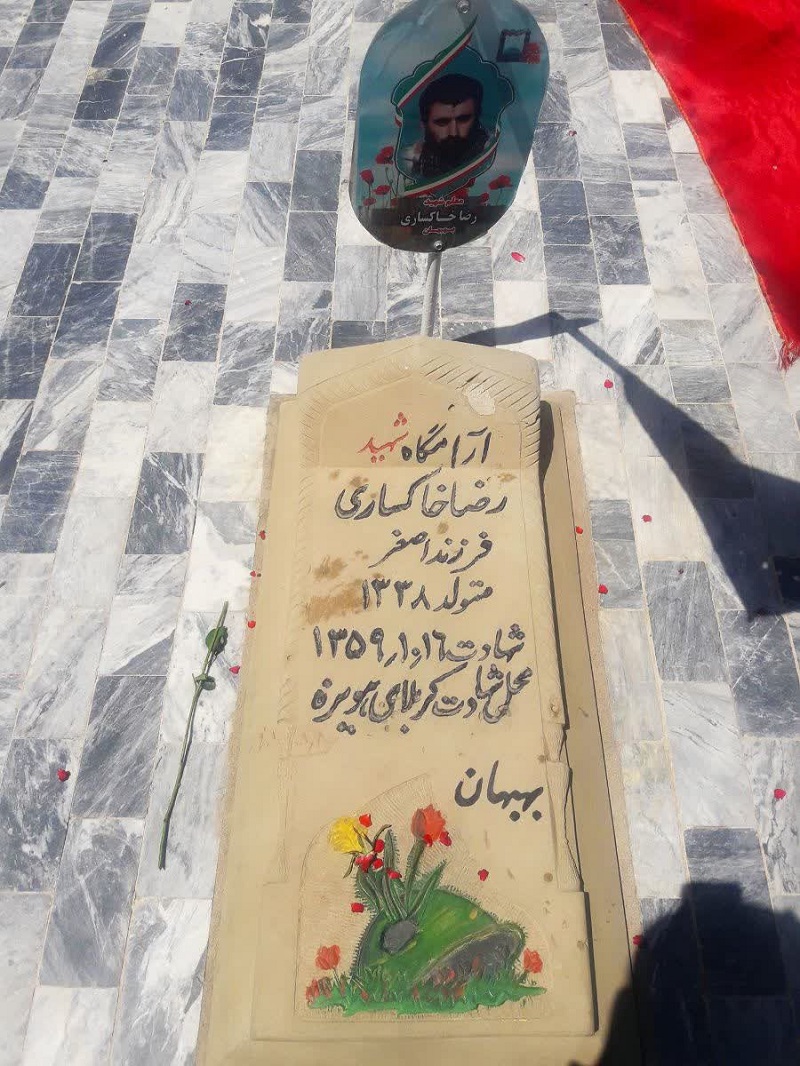 معلم شهید
رضا خاکساری
بهبهان
آرامگاه شهید
رضا خاکساری
فرزند اصغر
متولد ۱۳۳۸
شهادت ۱۳۵۹٫۱۰٫۱۶
محل شهادت کربلای هویزه
بهبهان